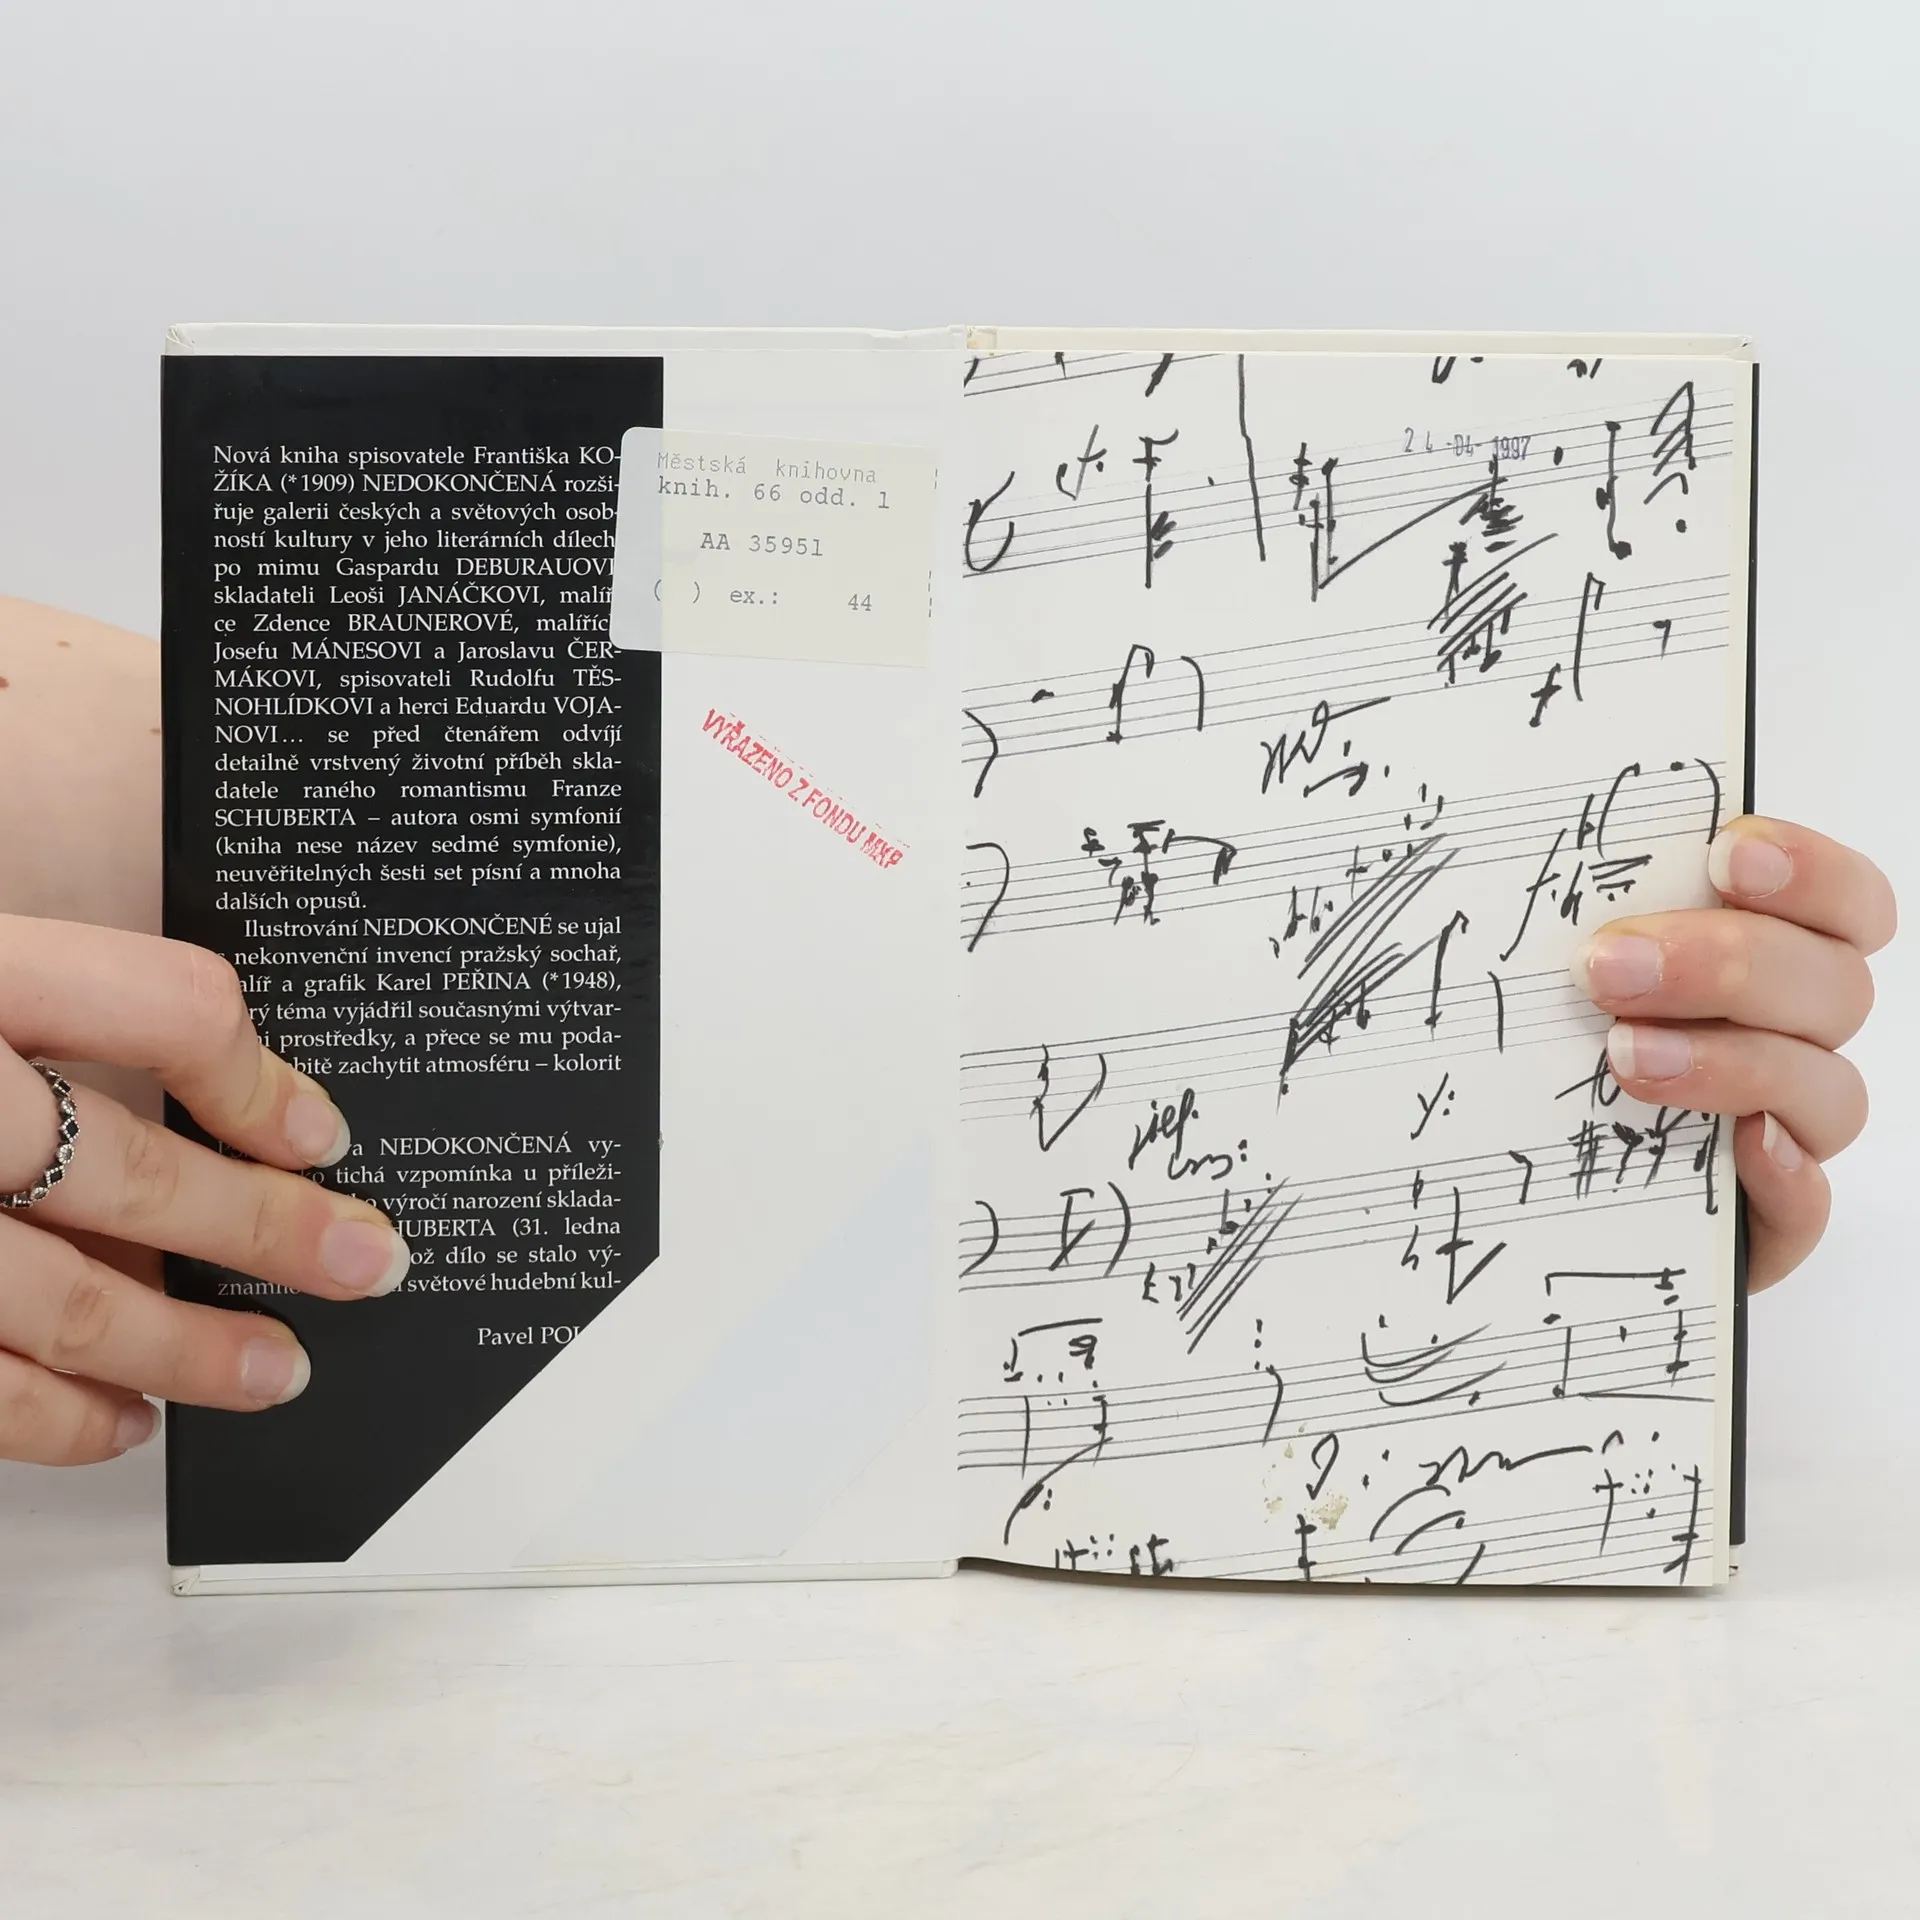 Nová kniha spisovatele Františka KO-
ŽÍKA (*1909) NEDOKONČENÁ rozši-
řuje galerii českých a světových osob-
ností kultury v jeho literárních dílech
po mimu Gaspardu DEBURAUOVI
skladateli Leoši JANÁČKOVI, malíř-
ce Zdence BRAUNEROVÉ, malířích
Josefu MÁNESOVI a Jaroslavu ČER-
MÁKOVI, spisovateli Rudolfu TĚS-
NOHLÍDKOVI a herci Eduardu VOJA-
NOVI... se před čtenářem odvíjí
detailně vrstvený životní příběh skla-
datele raného romantismu Franze
SCHUBERTA – autora osmi symfonií
(kniha nese název sedmé symfonie),
neuvěřitelných šesti set písní a mnoha
dalších opusů.
Ilustrování NEDOKONČENÉ se ujal
s nekonvenční invencí pražský sochař,
alíř a grafik Karel PEŘINA (*1948),
rý téma vyjádřil současnými výtvar-
i prostředky, a přece se mu poda-
obitě zachytit atmosféru – kolorit
va NEDOKONČENÁ vy-
ko tichá vzpomínka u příleži-
ho výročí narození sklada-
HUBERTA (31. ledna
ož dílo se stalo vý-
světové hudební kul-
Pavel POL
Městská knihovna
knih. 66 odd. 1
AA 35951
( ) ex.: 44
VYŘAZENO Z FONDU MKP
24 -04- 1997